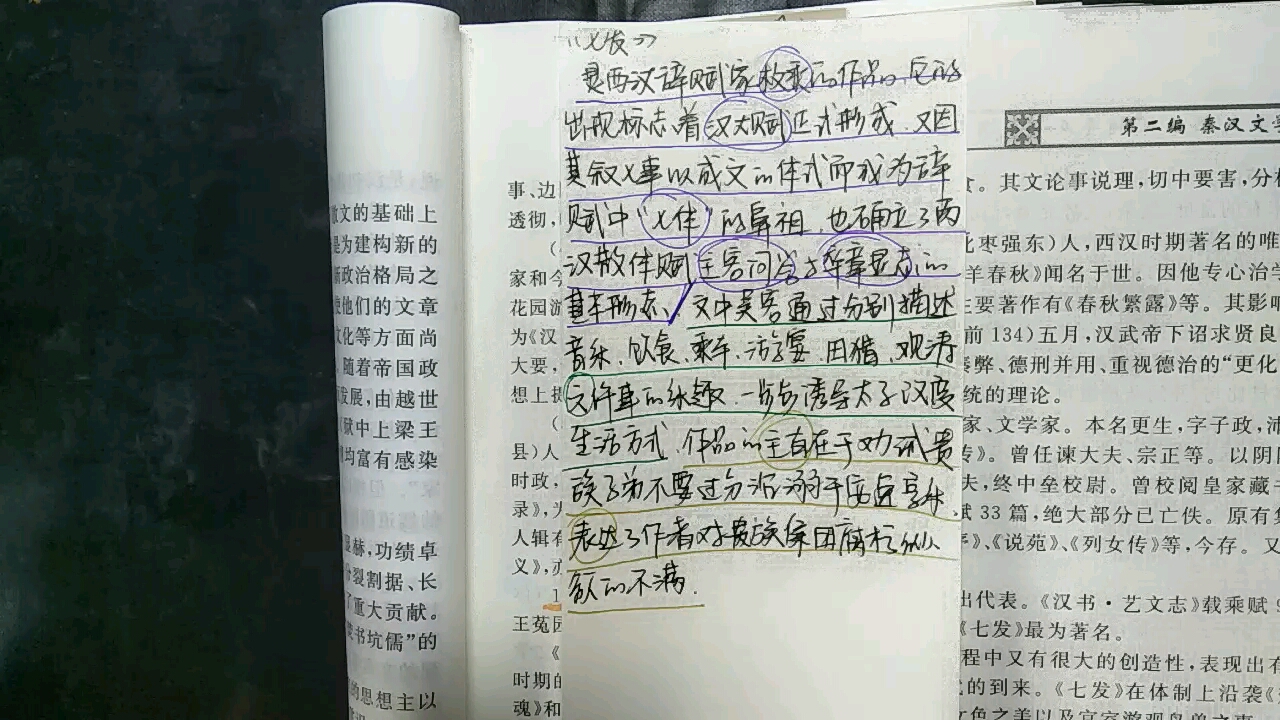 《七发》
是西汉辞赋家枚乘的作品,它的
出现标志着汉大赋正式形成,又因
其叙七事以成文的体式而成为辞
赋中“七体”的鼻祖,也确立了两
汉散体赋主客问答与卒章显志的
基本形态、文中吴客通过分别描述
音乐、饮食、乘车、游宴、田猎、观涛
六件事的乐趣,一步步诱导太子改变
生活方式,作品的主旨在于劝诫贵
族子弟不要过分沉溺于安逸享乐,
表达了作者对贵族集团腐朽纵
欲的不满.
文的基础上
是为建构新的
政治格局之
他们的文章
文化等方面尚
随着帝国政
发展,由越世
狱中上梁王
均富有感染
显赫,功绩卓
分裂割据、长
了重大贡献。
焚书坑儒”的
的思想主以
事、边
透彻,
家和今
花园游
为《汉
大要,
想上提
县)人
时政,
录》,
人辑有
义》,
1
王菟园
《
时期的
魂》和
第二编 秦汉文学
食。其文论事说理,切中要害,分析
北枣强东)人,西汉时期著名的唯
羊春秋》闻名于世。因他专心治学
主要著作有《春秋繁露》等。其影响
前 134)五月,汉武帝下诏求贤良
秦弊、德刑并用、重视德治的“更化
统的理论。
家、文学家。本名更生,字子政,沛
传》。曾任谏大夫、宗正等。以阴阳
夫,终中垒校尉。曾校阅皇家藏书
赋 33 篇,绝大部分已亡佚。原有集
序》、《说苑》、《列女传》等,今存。又
出代表。《汉书·艺文志》载乘赋 9
《七发》最为著名。
程中又有很大的创造性,表现出有
的到来。《七发》在体制上沿袭《
女色之美以及宫室游观鸟兽之事